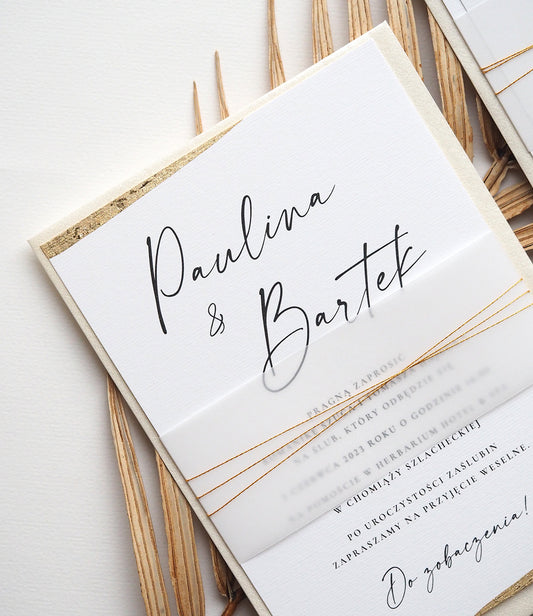 Paulina
& Bartek
PRAGNĄ ZAPROSIĆ
I TOMASZA
NA ŚLUB, KTÓRY ODBĘDZIE SIĘ
CZERWCA 2023 ROKU O GODZINIE
NA POMOŚCIE W HERBARIUM HOTEL & SPA
W CHOMIĄŻY SZLACHECKIEJ
PO UROCZYSTOŚCI ZAŚLUBIN
ZAPRASZAMY NA PRZYJĘCIE WESELNE.
Do zobaczenia!